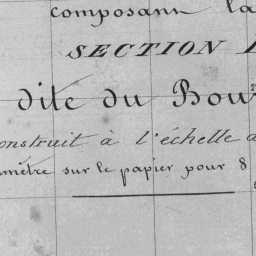 composant la
SECTION
dite du Bou
construit à l'échelle
mètre sur le papier pour 8